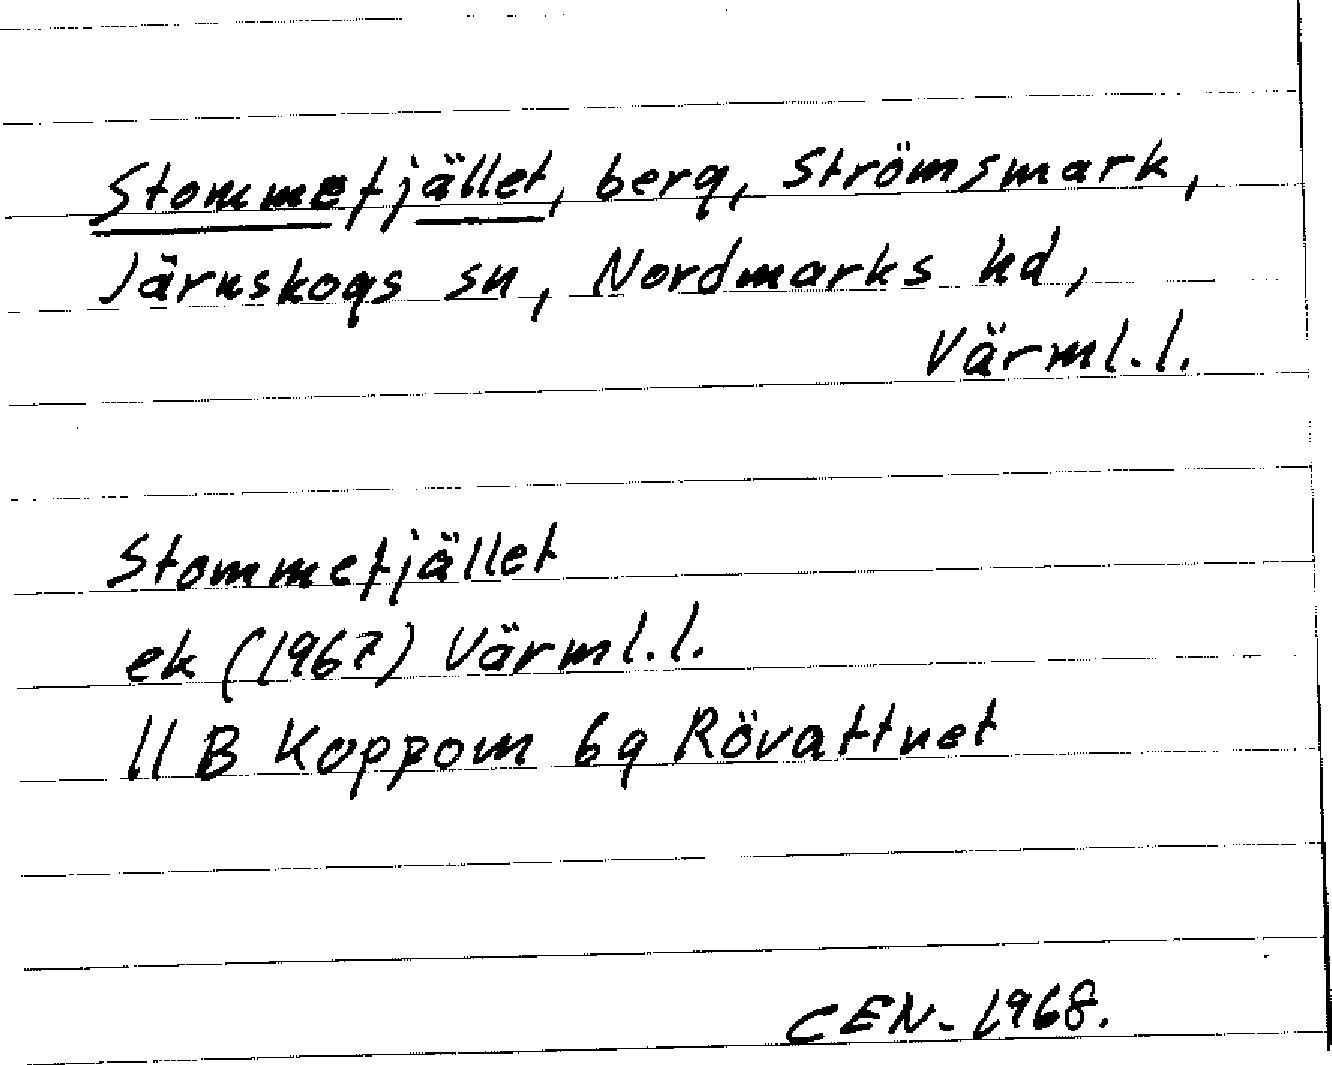 Stommefjället, berg, Strömsmark,
Järnskogs sn, Nordmarks hd,
Värml.l.
Stommefjället
ek (1967) Värml.l.
11 B Koppom 6g Rövattnet
CEN- 1968.